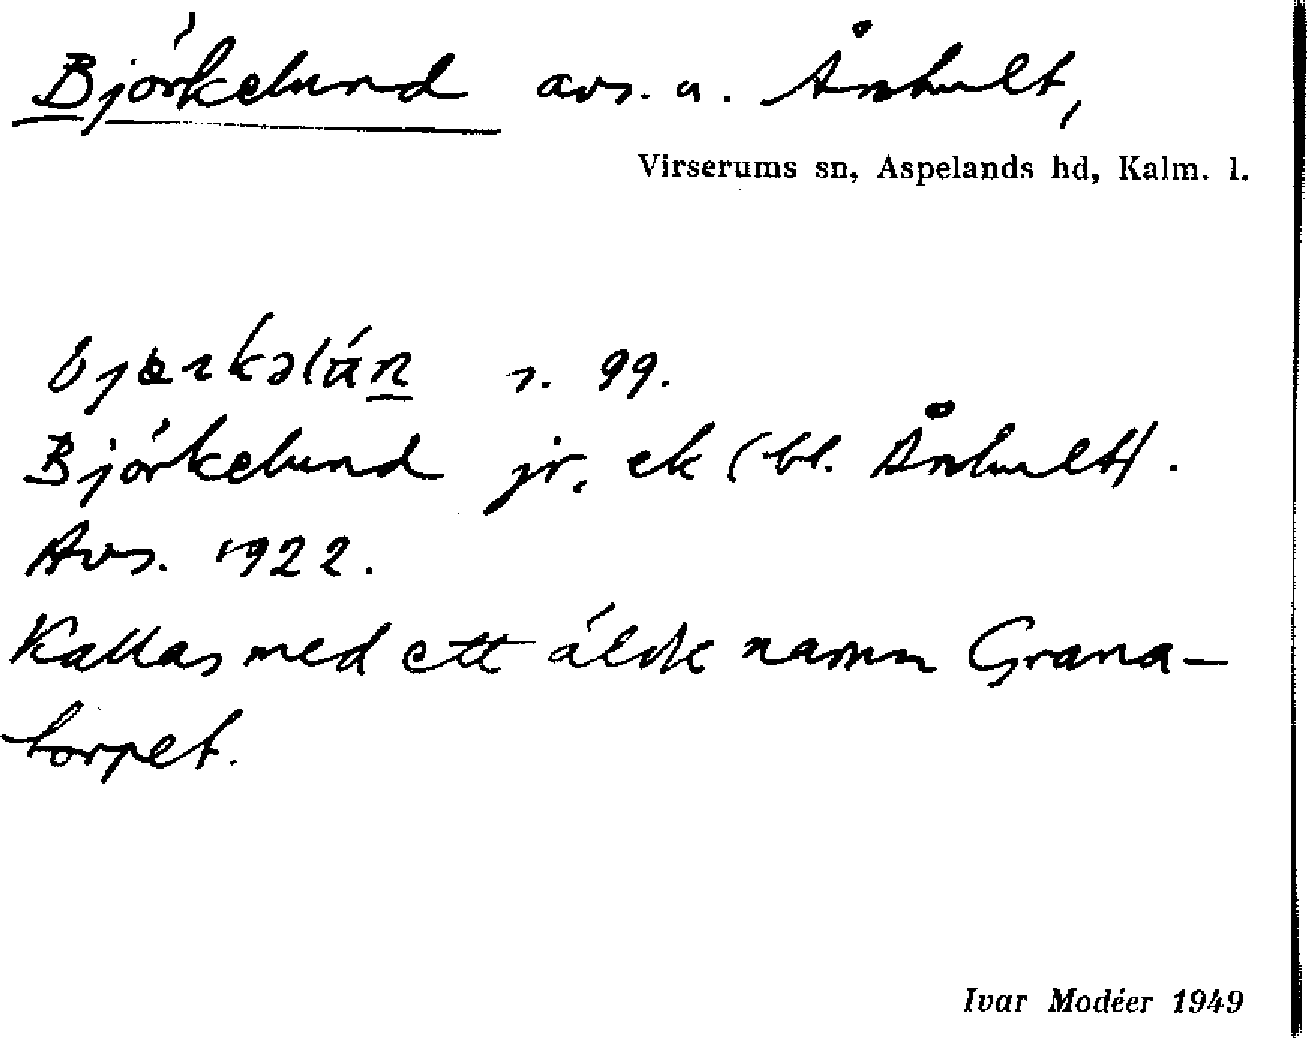 Björkelund avs. u. Ånhult,
Virserums sn, Aspelands hd, Kalm. l.
s. 99.
Björkelund jr, ek (bl. Ånhult).
Avs. 1922.
Kallas med ett äldre namn Grana-
torpet.
Ivar Modéer 1949